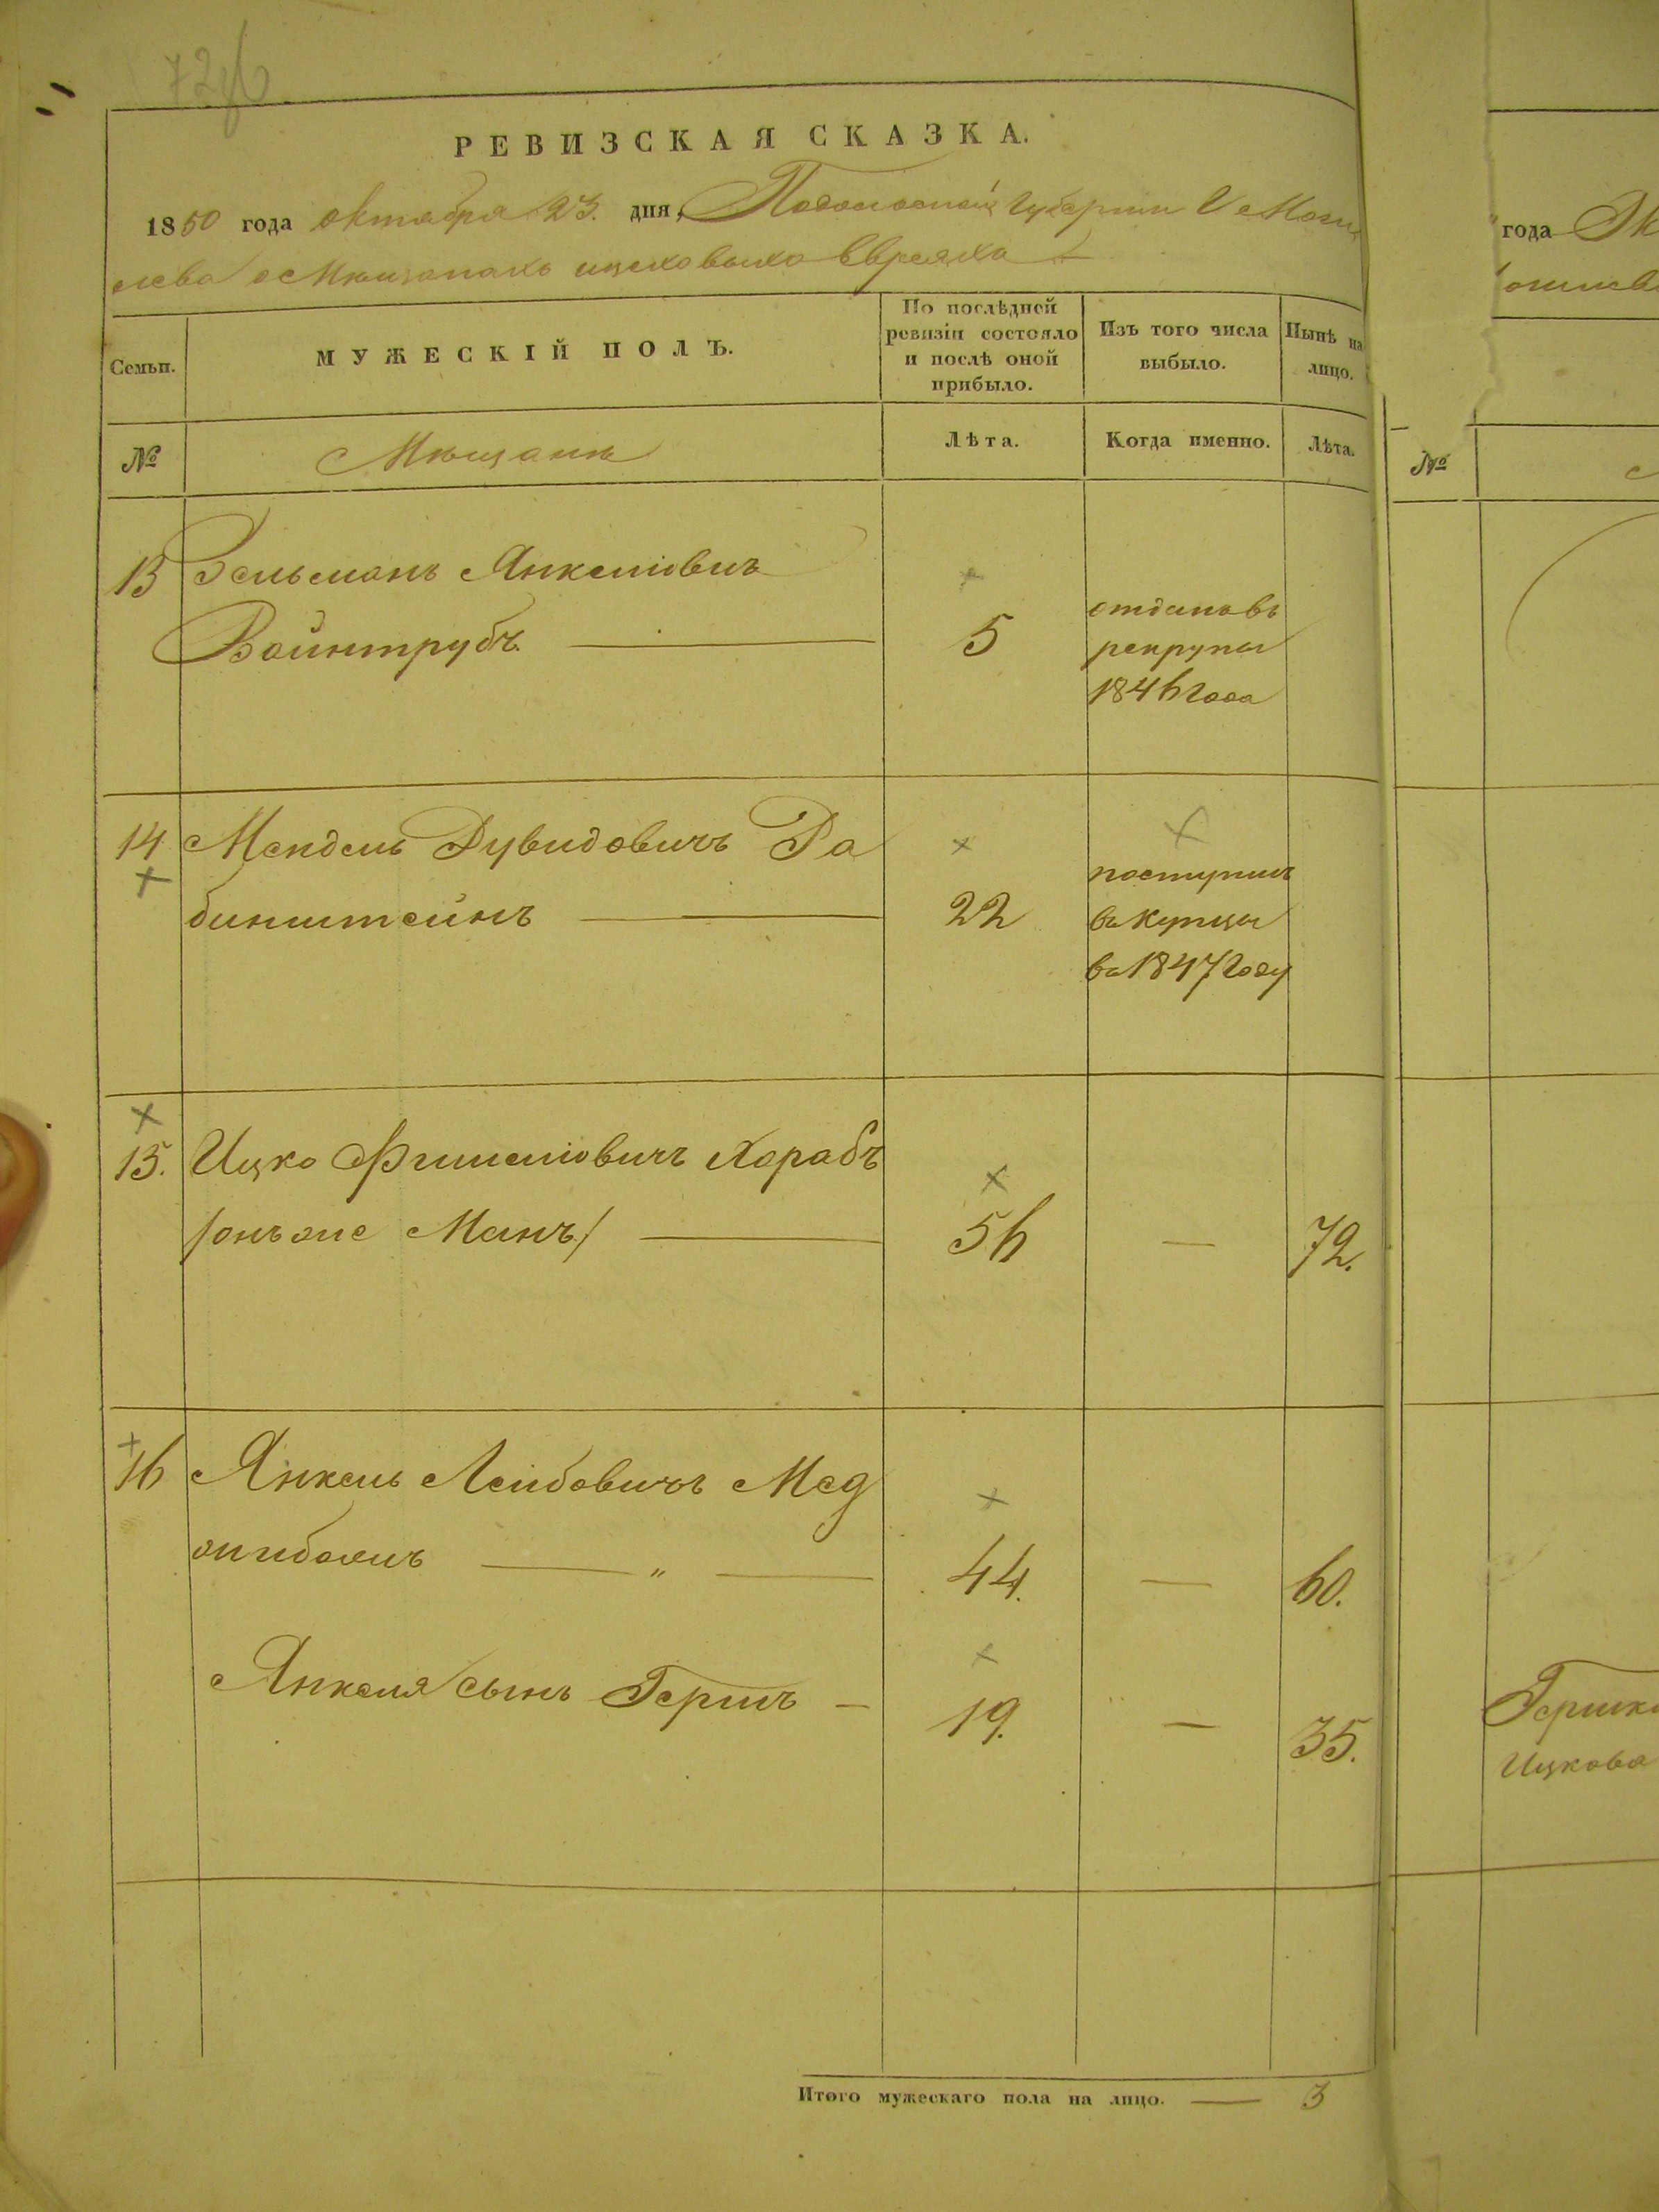 72об
РЕВИЗСКАЯ СКАЗКА.
1850 года октября 23. дня, Подольской Губернии Г Моги
лева о Мѣщанахъ цеховыхъ Евреяхъ
Семьи.
МУЖЕСКІЙ ПОЛЪ.
По послѣдней ревизіи состояло и послѣ оной прибыло.
Изъ того числа выбыло.
Нынѣ на лицо.
№
Мѣщане
Лѣта.
Когда именно.
Лѣта.
13 Зельманъ Янкелiовичъ
Вайнтрубъ. 5
отданъ въ
рекруты
1846 года
14 Мендель Дувидовичъ Ра
бинштейнъ 22
поступилъ
въ купцы
въ 1847 году
15. Ицко Фишелiовичъ Хорабъ
/онъ же Манъ/ 56 — 72.
16 Янкель Лейбовичъ Мед
жибожъ " 44. — 60.
Янкеля сынъ Гершъ — 19. — 35.
Итого мужескаго пола на лицо. — 3
года
№
Гершк
Ицкова